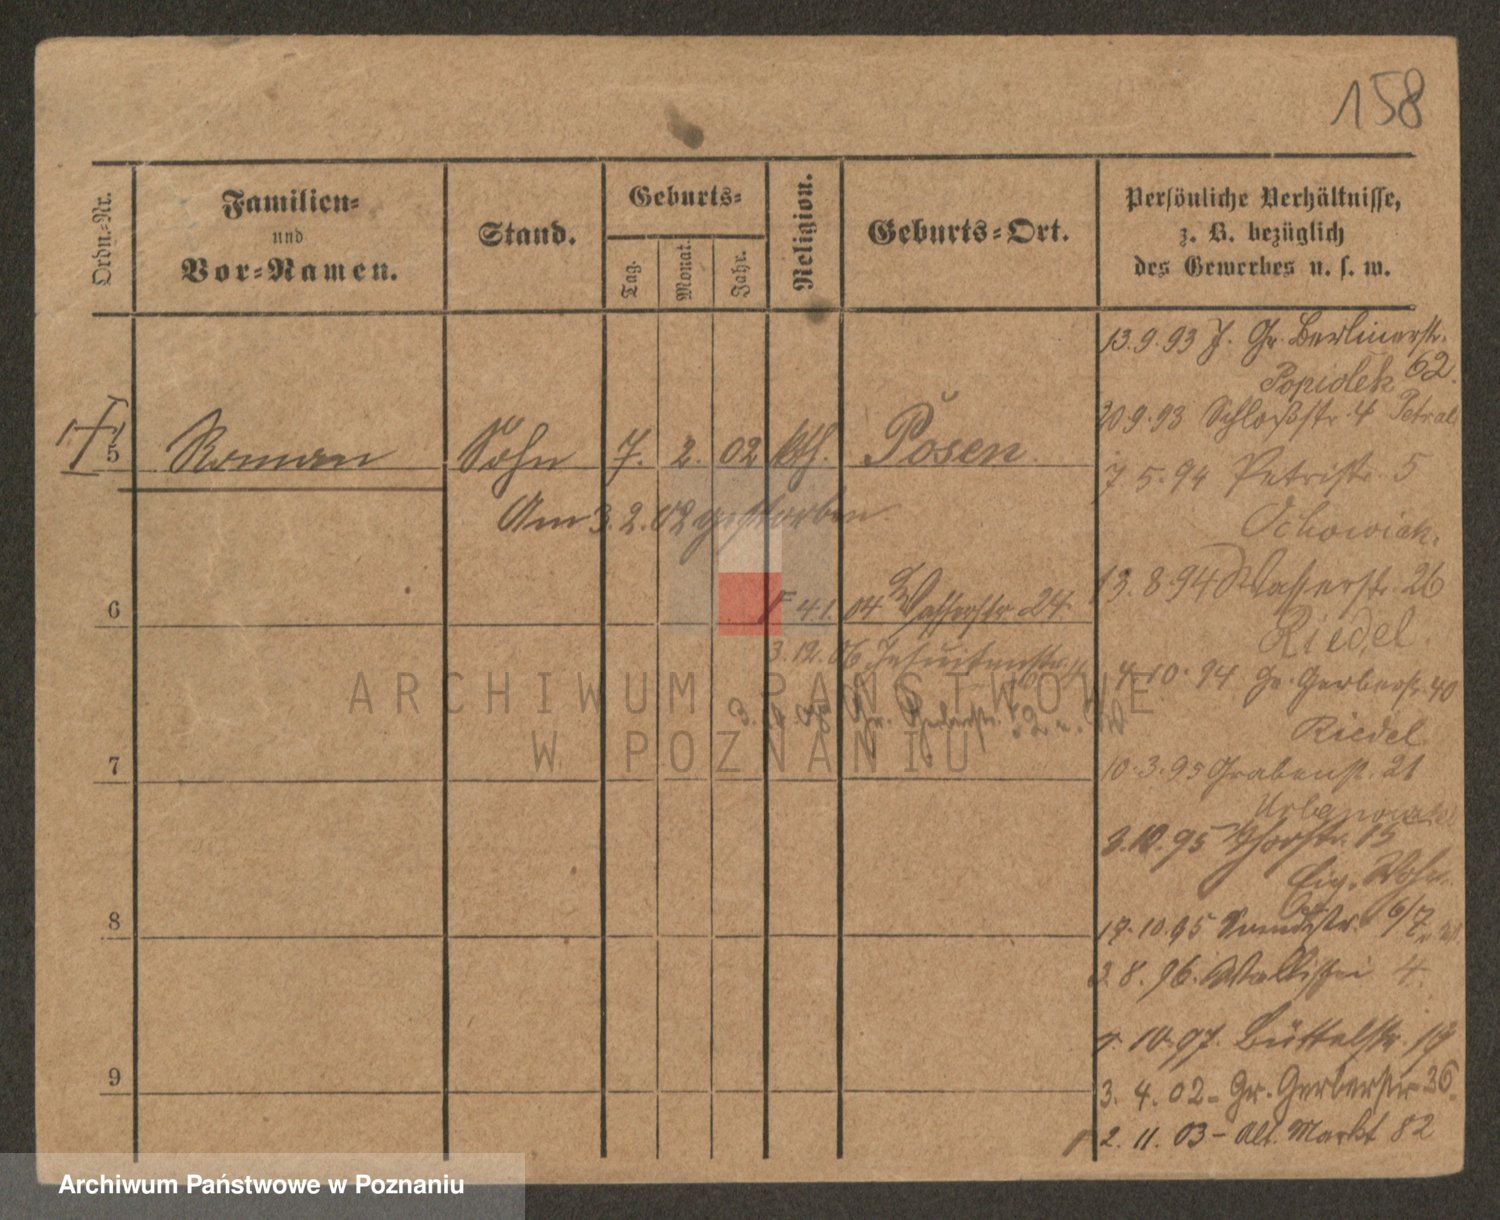 158
Ordn.-Nr.
Familien-
und
Vor-Namen.
Stand.
Geburts-
Tag.
Monat.
Jahr.
Religion.
Geburts-Ort.
Persönliche Verhältnisse,
z. B. bezüglich
des Gewerbes u. s. w.
13.9.93 J. Gr. Berlinerstr.
62.
Popiolek
20.9.93 Schloßstr. 4
5 Roman Sohn 7. 2. 02 kth. Posen
7.5.94 Petristr. 5
Am 3.2.02 gestorben
Ochowiak.
13.8.94 Wasserstr. 26
6
4.1.04 Wasserstr. 24.
Riedel
3.12.06 Jesuitenstr.
4.10.94 Gr. Gerberstr. 40
Riedel
Gr. Gerberstr.
7
10.3.95 Grabenstr. 21
3.10.95 Thorstr. 15
Eig. Wohn.
8
17.10.95 6/7
3.8.96. Wallischei 4.
10.97. Büttelstr. 19
9
3. 4. 02 - Gr. Gerberstr. 36.
2. 11. 03 - Alt. Markt 82
ARCHIWUM PAŃSTWOWE
W POZNANIU
Archiwum Państwowe w Poznaniu